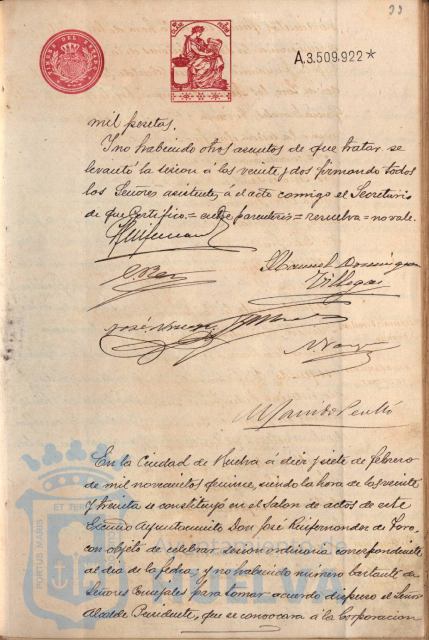 33
TIMBRE DEL ESTADO
A.3.509.922*
mil pesetas.
Y no habiendo otros asuntos de que tratar se
levantó la sesion á las veinte y dos firmando todos
los Señores asistentes, á el acto conmigo el Secretario
de que Certifico = entre parentesis = resuelva = no vale.
Manuel Dominguez
Villegas
En la Ciudad de Huelva á diez y siete de febrero
de mil novecientos quince, siendo la hora de las veinte
y treinta se constituyó en el Salon de actos de este
Excmo Ayuntamiento Don José Ruifernandez de Toro,
con objeto de celebrar sesion ordinaria correspondiente
al dia de la fecha; y no habiendo número bastante de
Señores Concejales para tomar acuerdo dispuso el Señor
Alcalde Presidente, que se convocara á la Corporacion
PORTUS MARIS
ET TERRÆ
Ayuntamiento de